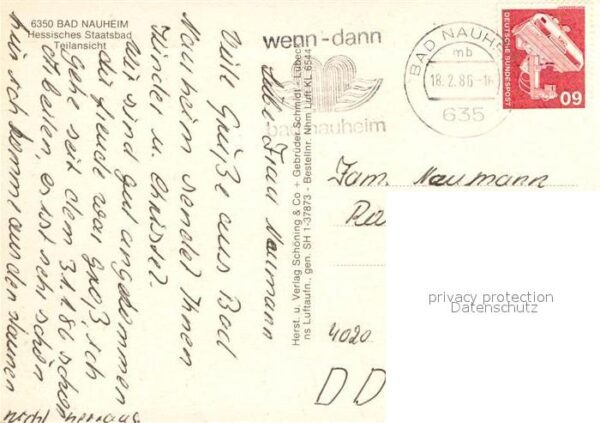 6350 BAD NAUHEIM
Hessisches Staatsbad
Teilansicht
wenn-dann
bad nauheim
BAD NAUHEIM
mb
18.2.86-16
635
DEUTSCHE BUNDESPOST
60
Herst. u. Verlag Schöning & Co + Gebrüder Schmidt - Lübeck
ns Luftaufn., gen. SH 1-37873 - Bestellnr. Nhm Luft KL 6544
Liebe Frau Naumann
Viele Grüße aus Bad
Nauheim sendet Ihnen
Kinder u. Christel.
Wir sind gut angekommen
die Freude war groß, ich
gehe seit dem 3.1.86 schon
arbeiten, es ist sehr schön
für ich komme aus dem Staunen
nicht heraus
Fam. Naumann
Ra
4020
DD
privacy protection
Datenschutz